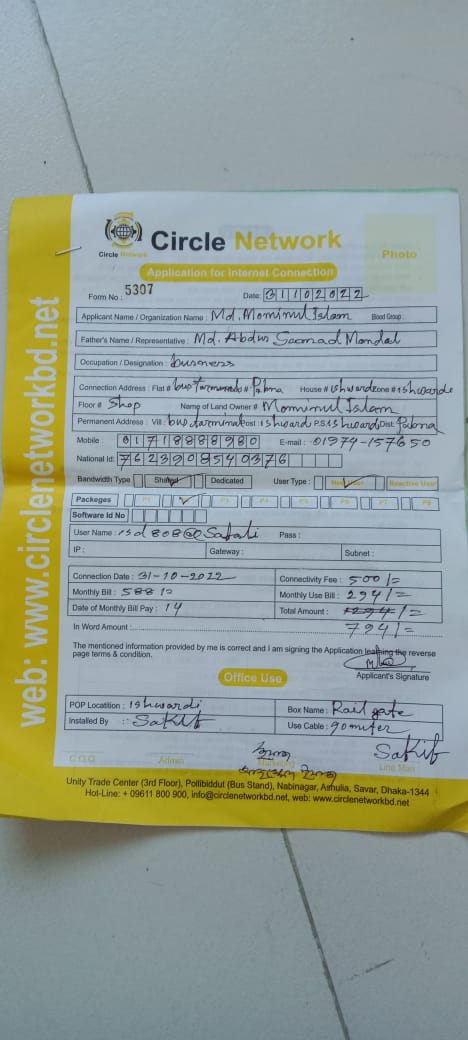 Circle Network
Circle Network
Photo
Application for Internet Connection
Form No : 5307 Date: 31102022
Applicant Name / Organization Name : Md. Momimul Islam Bood Group :
Father's Name / Representative : Md. Abdus Samad Mondal
Occupation / Designation : business
Connection Address : Flat # House # Zone #
Floor # Shop Name of Land Owner # Momimul Islam
Permanent Address : Vill : Post : P.S : Dist: Pabna
Mobile : 01718888980 E-mail : 01974-157650
National Id: 7623908540376
Bandwidth Type Shared Dedicated User Type : New User Reactive User
Packeges P1 P3 P4 P5 P6 P7 P8
Software Id No
User Name : Pass :
IP : Gateway : Subnet :
Connection Date : 31-10-2022 Connectivity Fee : 500/=
Monthly Bill : Monthly Use Bill : 294/=
Date of Monthly Bill Pay : 14 Total Amount :
794/=
In Word Amount :
The mentioned information provided by me is correct and I am signing the Application the reverse
page terms & condition.
Applicant's Signature
Office Use
POP Locatition : Ishwardi Box Name : Rail gate
Installed By : Sakib Use Cable : 90 miter
Sakib
C.O.O Admin Marketing Line Man
Unity Trade Center (3rd Floor), Pollibiddut (Bus Stand), Nabinagar, Ashulia, Savar, Dhaka-1344
Hot-Line: + 09611 800 900, info@circlenetworkbd.net, web: www.circlenetworkbd.net
web: www.circlenetworkbd.net